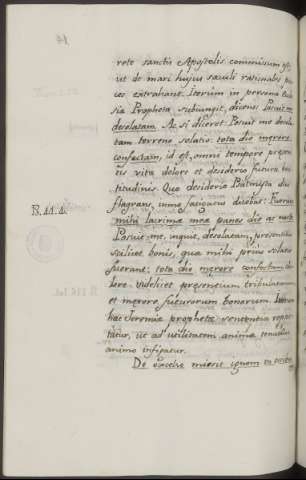 reto sanctis Apostolis commissum est,
ut de mari hujus sæculi rationales pis-
ces extrahant. Iterum in persona Eccle
sia Propheta subiungit, dicens: Posuit me
desolatam. Ac si diceret: Posuit me desola
tam terreno solatio: tota die mœrore
confectam, id est, omni tempore præsen
tis vitæ dolore et desiderio futuræ bea
titudinis. Quo desiderio Psalmista
flagrans, dicebat: Fuerunt
Ps. 41. 4.
mihi lacrimæ meæ panes die ac nocte
Posuit me, inquit, desolatam, præsentibus
scilicet bonis, quæ mihi prius solatio
fuerant: tota die mœrore confectam
lore videlicet præsentium tribulationum
et mœrore futurorum bonorum.
hæc Jeremiæ prophetæ sententia repe
tatur, ut ad utilitatem animæ tenacius
animo infigatur.
De excelso misit ignem in ossibus